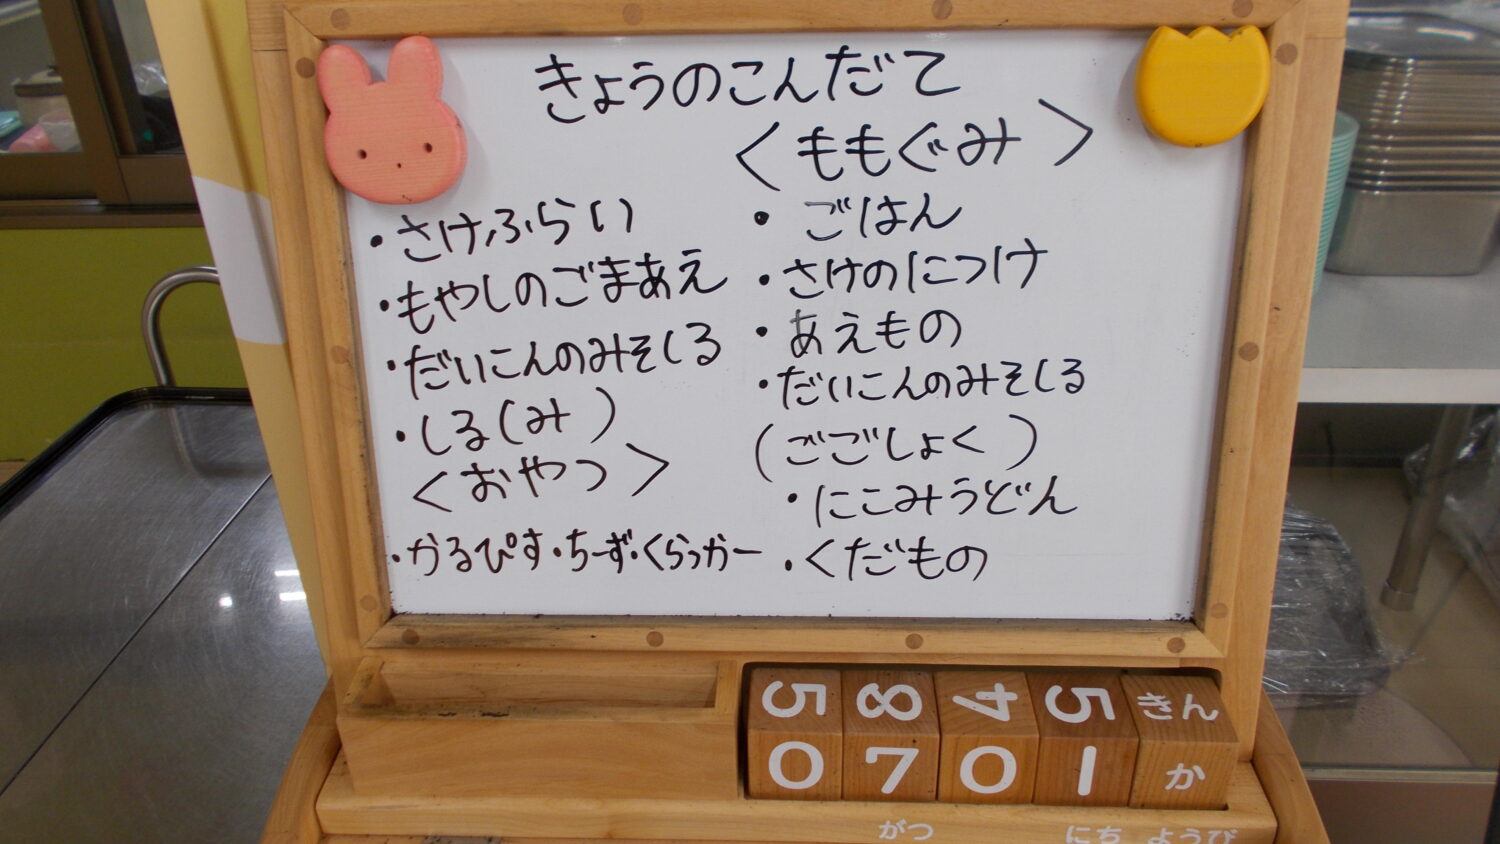 きょうのこんだて
・さけふらい
・もやしのごまあえ
・だいこんのみそしる
・しる(み)
<おやつ>
・かるぴす・ちーず・くらっかー
<ももぐみ>
・ごはん
・さけのにつけ
・あえもの
・だいこんのみそしる
(ごごしょく)
・にこみうどん
・くだもの
5 8 4 5 きん
0 7 0 1 か
がつ にち ようび